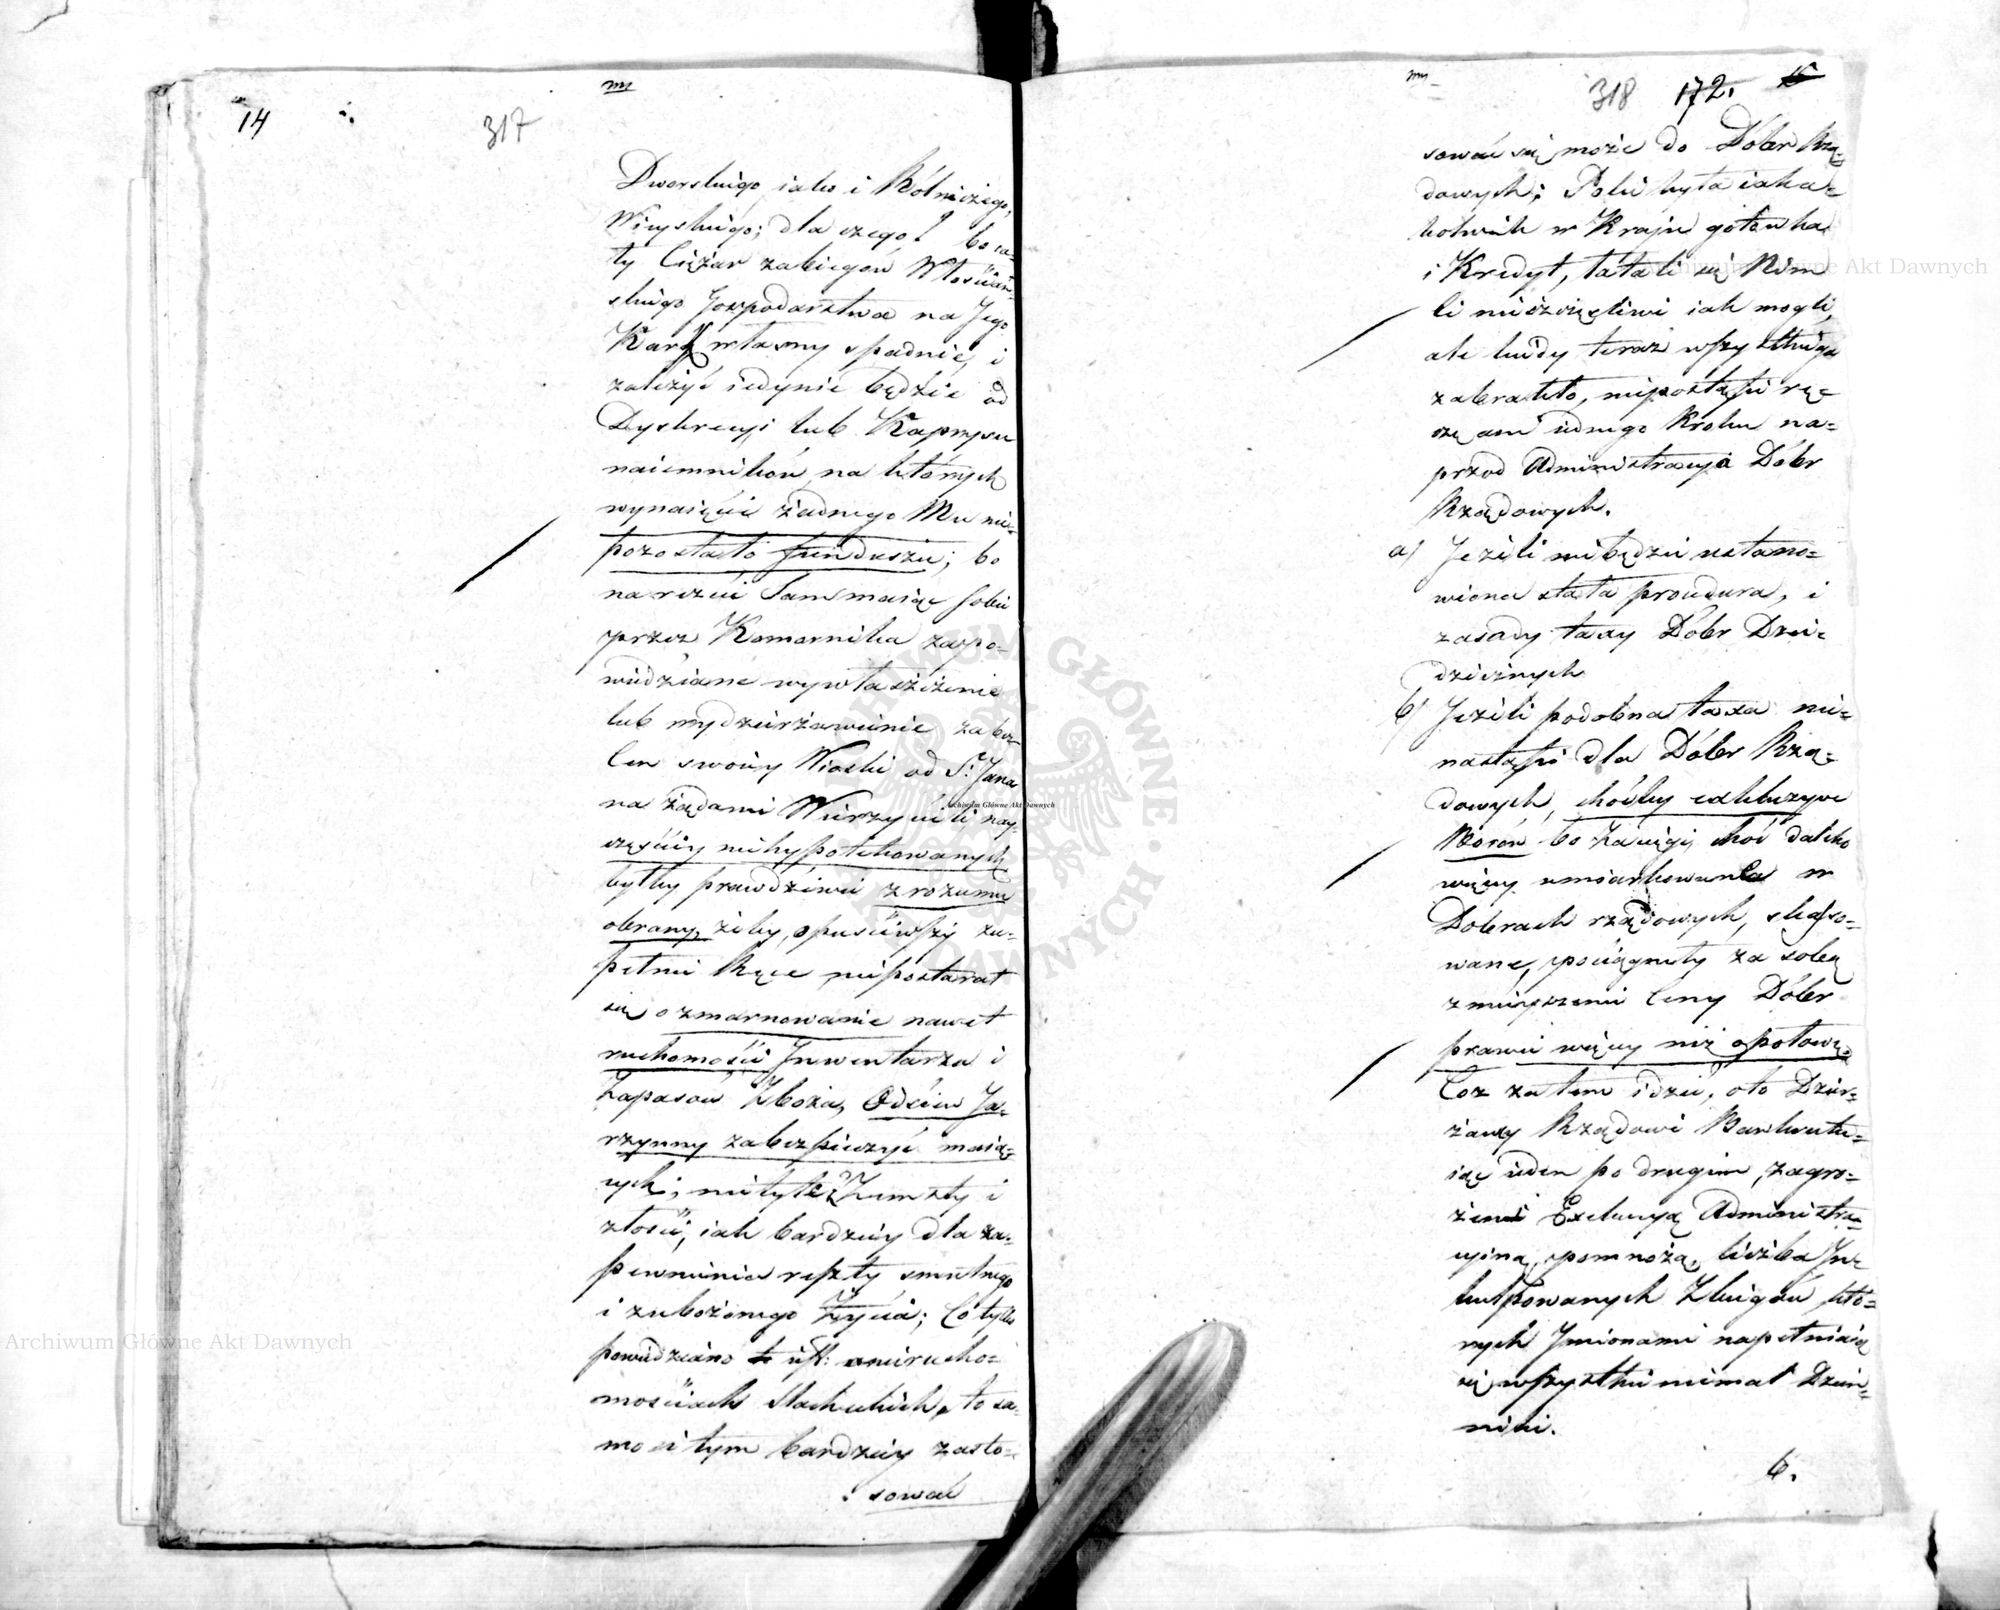 14
317
Dworskiego iako i Rólniczego,
Wieyskiego; dla czego! bo ca-
ły Ciężar zabiegow Włościań-
skiego Gospodarstwa na Jego
Kark własny spadnie, i
zależyć iedynie będzie od
Dyskrecyi lub Kaprysu
naiemników, na których
wynaięcie żadnego Mu nie-
pozostało funduszu; bo
nareście Sam maiąc sobie
przez Komornika zapo-
wiedziane wywłaszczenie
lub wydzierżawienie za bez-
Cen swoiey Wioski od S: Jana
na żądanie Wierzycieli nay-
częściey niehypotekowanych
byłby prawdziwie z rozumu
obrany, żeby, opuściwszy zu-
pełnie Ręce, niepostarał
się o zmarnowanie nawet
ruchomości Inwentarza i
Zapasów Zboża, Odsiew Ja-
rzynny zabezpieczyć maią-
cych; nietyle z Zemsty i
złości, iak bardziey dla za-
pewnienia reszty smutnego
i zubożonego Życia; Co tylko
powiedziano iest: o nierucho-
mościach Slacheckich, to sa-
mo i tym bardziey zasto-
sować
318 172. 15
sować się może do Dóbr Rzą-
dowych; Poki była iaka-
kolwiek w Kraju gotówka
i Kredyt, łatali się Niem
Ci nieszczęśliwi iak mogli,
ale kiedy teraz wszystkiego
zabrakło, niepostąpi rę-
czę ani iednego Kroku na-
przod Administracyia Dóbr
Rządowych.
a) Jeżeli niebędzie ustano-
wiona stała procedura, i
zasady taxy Dóbr Dzie-
dzicznych
b) Jeżeli podobna taxa nie-
nastąpi dla Dóbr Rzą-
dowych, choćby exkluzyve
Borów bo te
więcy umiarkowania w
Dobrach rządowych, skasso-
wane, pociągnęły za sobą
zmieyszenie Ceny Dóbr
prawie więcy niż o połowę
Coż za tem idzie, oto Dzier-
żawcy Rządowi Bankrutu-
iąc ieden po drugim, zagro-
żeni Exekucyą Administra-
cyiną, pomnożą liczbę In-
kulpowanych Zbiegów, któ-
rych Imionami napełniaią
się wszystkie niemal Dzien-
niki.
6.
Archiwum Główne Akt Dawnych
Archiwum Główne Akt Dawnych
Archiwum Główne Akt Dawnych
ARCHIWUM GŁÓWNE AKT DAWNYCH